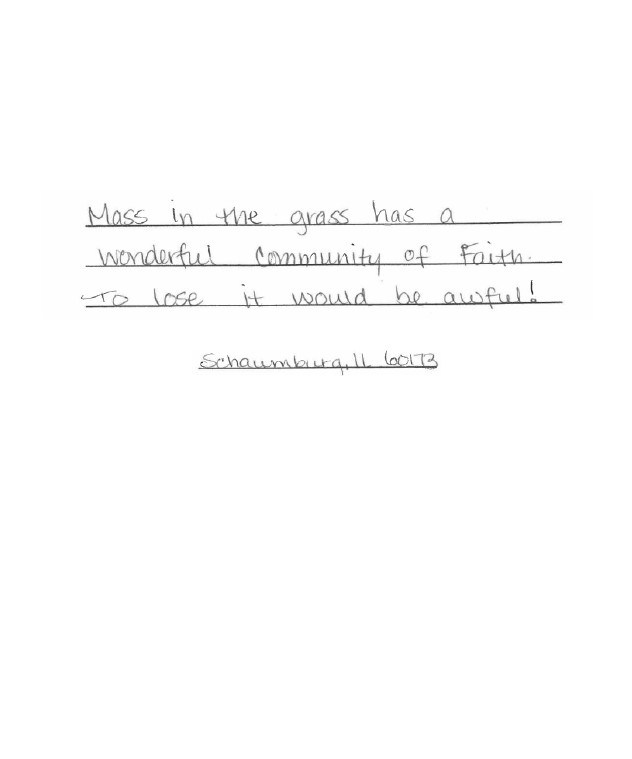 Mass in the grass has a
wonderful community of Faith.
To lose it would be awful!
Schaumburg, IL 60173